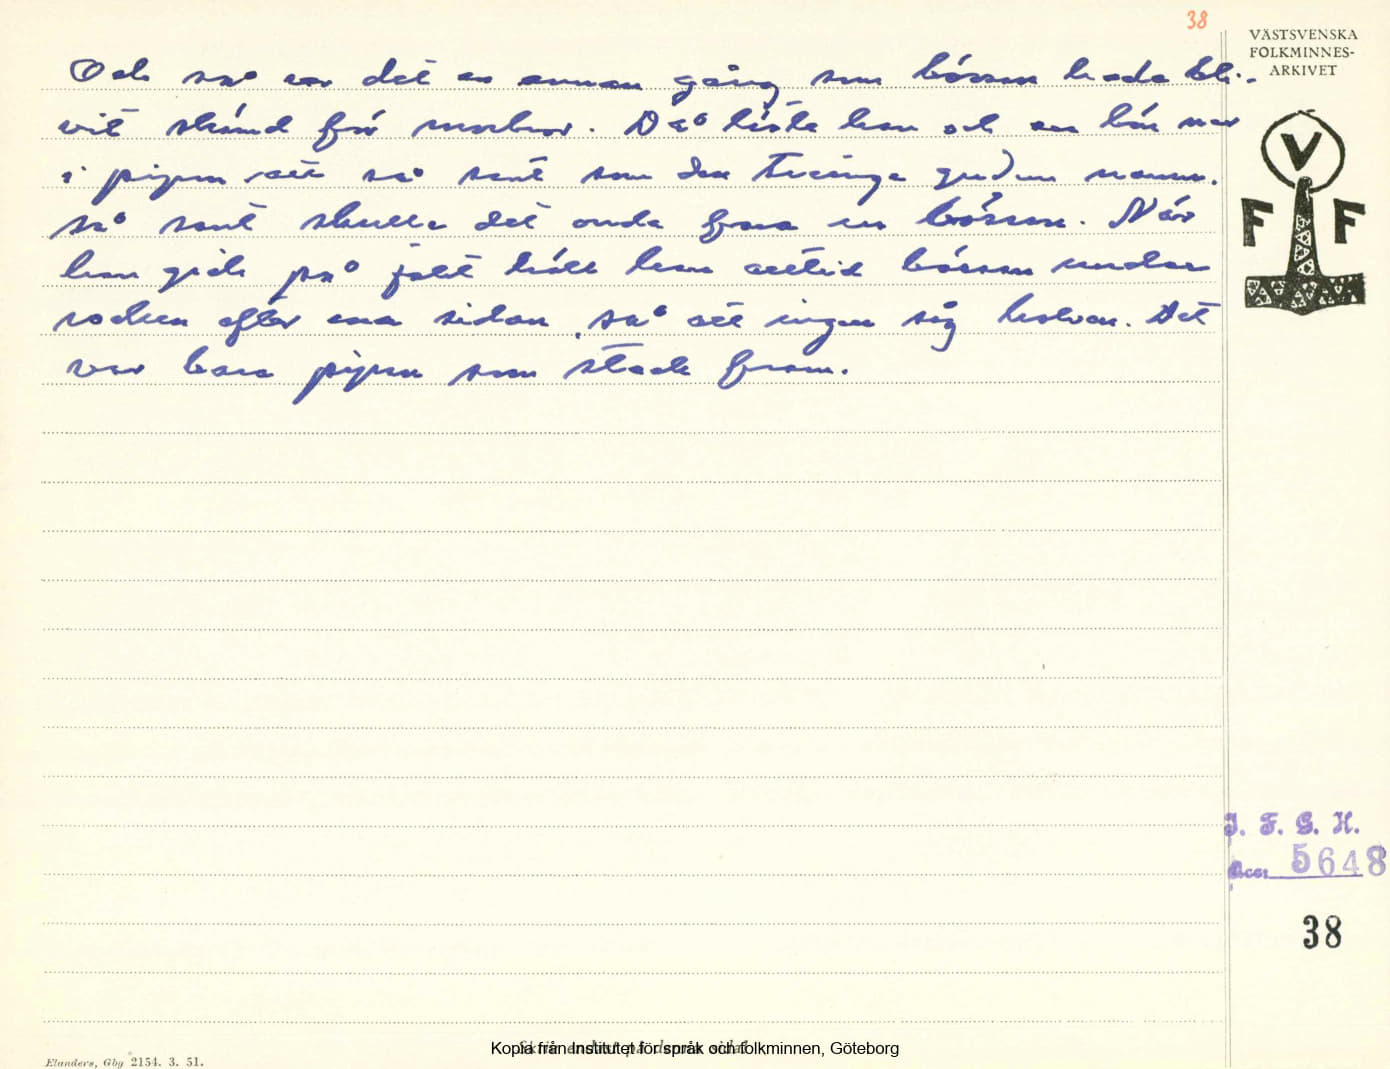 38
VÄSTSVENSKA
FOLKMINNES-
ARKIVET
Och så var det en annan gång som bössan hade bli-
vit skämd för morbror. Då läste han och en bön ner
i pipan att så sant som den treenige guden namn.
så sant skulle det onda fara ur bössan. När
han gick på jakt höll han alltid bössan under
rocken efter ena sidan, så att ingen såg kolven. Det
var bara pipan som stack fram.
V
F F
I. F. G. H.
Acc: 5648
38
Elanders, Gbg 2154. 3. 51.
Kopia från Institutet för språk och folkminnen, Göteborg